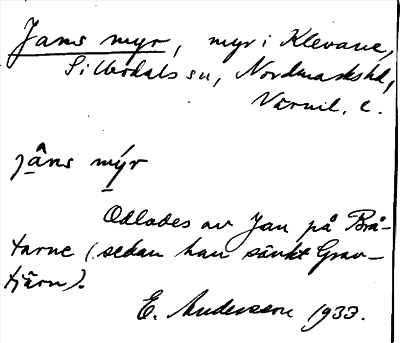 Jans myr, myr i Klevane,
Silbodals sn, Nordmarks hd,
Värml. l.
jâns mýr
Odlades av Jan på Brå-
tarne (sedan han sänkt Grav-
tjärn).
E. Anderson 1933.